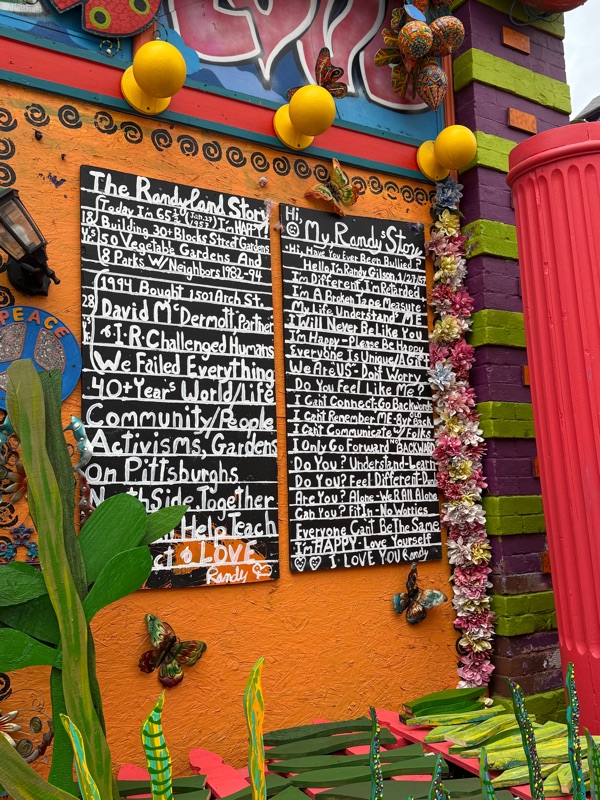 PEACE
The Randyland Story
Today I'm 65¾ Jan. 27 1957 I'm HAPPY!
18 Building 30+ Blocks Street Gardens
Yrs 50 Vegetable Gardens And
8 Parks W/ Neighbors 1982-94
1994 Bought 1501 Arch St.
28 David McDermott, Partner
& I-R-Challenged Humans
We Failed Everything
40+Year's World/Life
Community/People
Activisms, Gardens
on Pittsburghs
North Side Together
Help Teach
LOVE
Randy
Hi,
My, Randy's Story
"Hi, Have You Ever Been Bullied"?
Hello, I'm Randy Gilson, 1/27/57
I'm Different, I'm Retarded
I'm A Broken Tape Measure
My Life Understands ME
I Will Never Be Like You
I'm Happy-Please Be Happy
Everyone Is Unique/A Gift
We Are US-Don't Worry
Do You Feel Like Me?
I Can't Connect, Go Backwords
I Can't Remember ME-8yr OLD Back
I Can't Communicate w/Folks
I Only Go Forward NO BACKWARD
Do You? Understand-Learn
Do You? Feel Different-Dumb
Are You? Alone-We R All Alone
Can You? Fit In-No Worries
Everyone Can't Be The Same
I'm HAPPY-Love Yourself
I LOVE YOU Randy